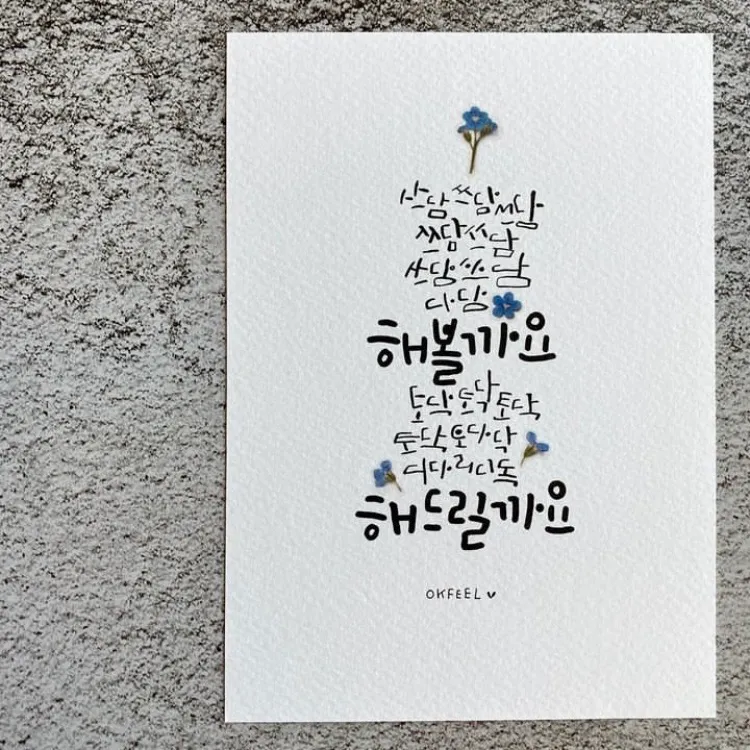 쓰담쓰담쓰담
쓰담쓰담
쓰담쓰담
다담
해볼까요
토닥토닥토닥
토닥토다닥
해드릴까요
OKFEEL